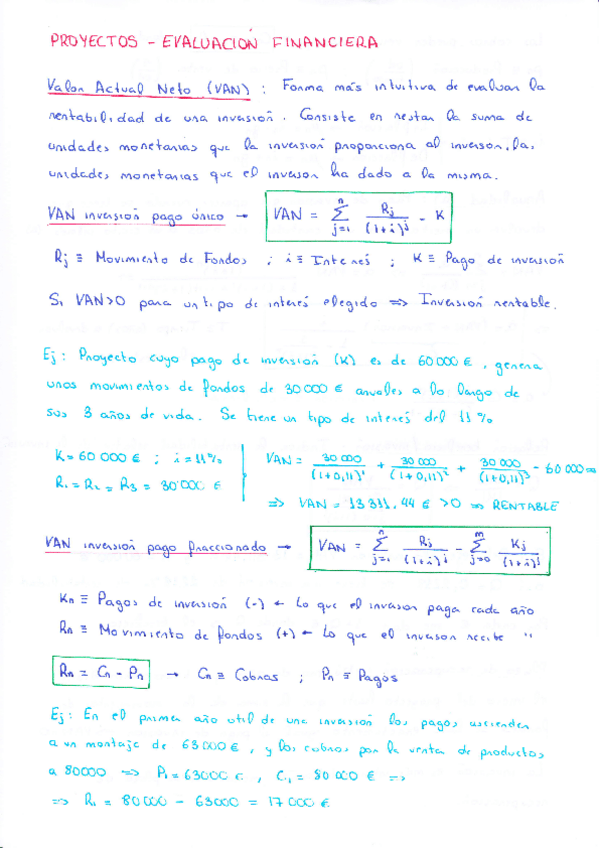 PROYECTOS - EVALUACION FINANCIERA
Valor Actual Neto (VAN) : Forma más intuitiva de evaluar la
rentabilidad de una inversión. Consiste en restar la suma de
unidades monetarias que la inversión proporciona al inversor, las
unidades monetarias que el inversor ha dado a la misma.
VAN inversión pago único → VAN = Σ_{j=1}^{n} Rj/(1+i)^j - K
Rj ≡ Movimiento de Fondos ; i ≡ Interés ; K ≡ Pago de inversión
Si VAN>0 para un tipo de interés elegido => Inversión rentable.
Ej: Proyecto cuyo pago de inversión (K) es de 60000 €, genera
unos movimientos de fondos de 30000 € anuales a lo largo de
sus 3 años de vida. Se tiene un tipo de interés del 11%
K = 60 000 € ; i = 11%
R₁ = R₂ = R₃ = 30'000 €
VAN = 30 000/(1+0,11)¹ + 30 000/(1+0,11)² + 30 000/(1+0,11)³ - 60 000 =>
=> VAN = 13 311.44 € > 0 => RENTABLE
VAN inversión pago fraccionado → VAN = Σ_{j=1}^{n} Rj/(1+i)^j - Σ_{j=0}^{m} Kj/(1+i)^j
Kn ≡ Pagos de inversión (-) ← Lo que el inversor paga cada año
Rn ≡ Movimiento de fondos (+) ← Lo que el inversor recibe "
Rn = Cn - Pn → Cn ≡ Cobros ; Pn ≡ Pagos
Ej: En el primer año util de una inversión los pagos ascienden
a un montaje de 63000 €, y los cobros por la venta de productos
a 80000 => P₁ = 63000 €, C₁ = 80 000 € =>
=> R₁ = 80 000 - 63000 = 17 000 €